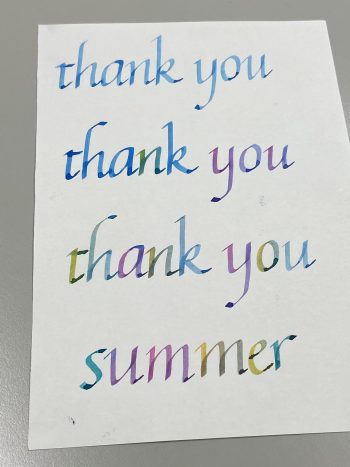 thank you
thank you
thank you
summer